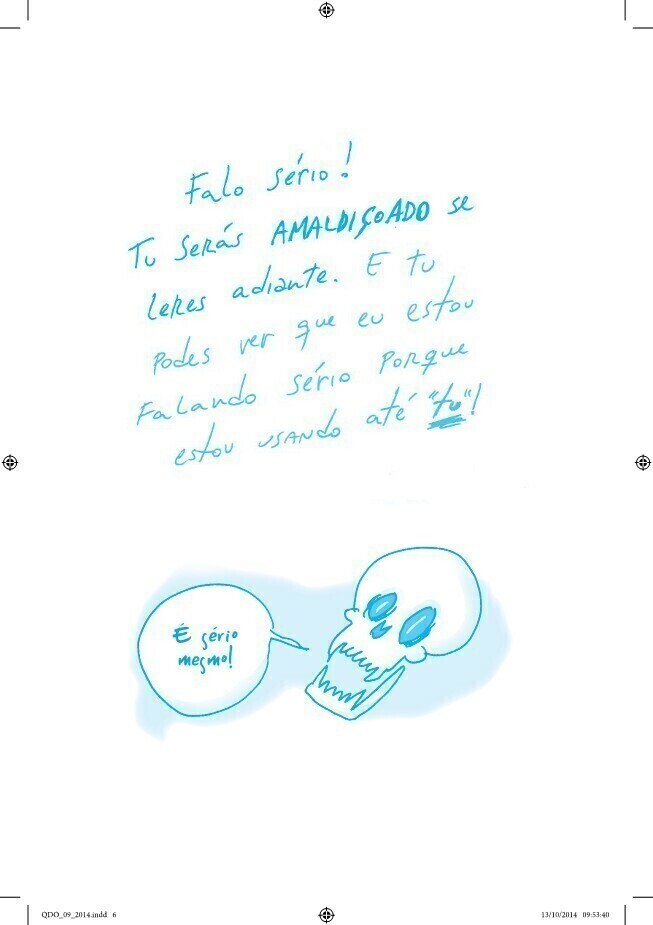 Falo sério!
Tu serás AMALDIÇOADO se
leres adiante. E tu
podes ver que eu estou
falando sério porque
estou usando até "tu"!
É sério
mesmo!
QDO_09_2014.indd 6
13/10/2014 09:53:40